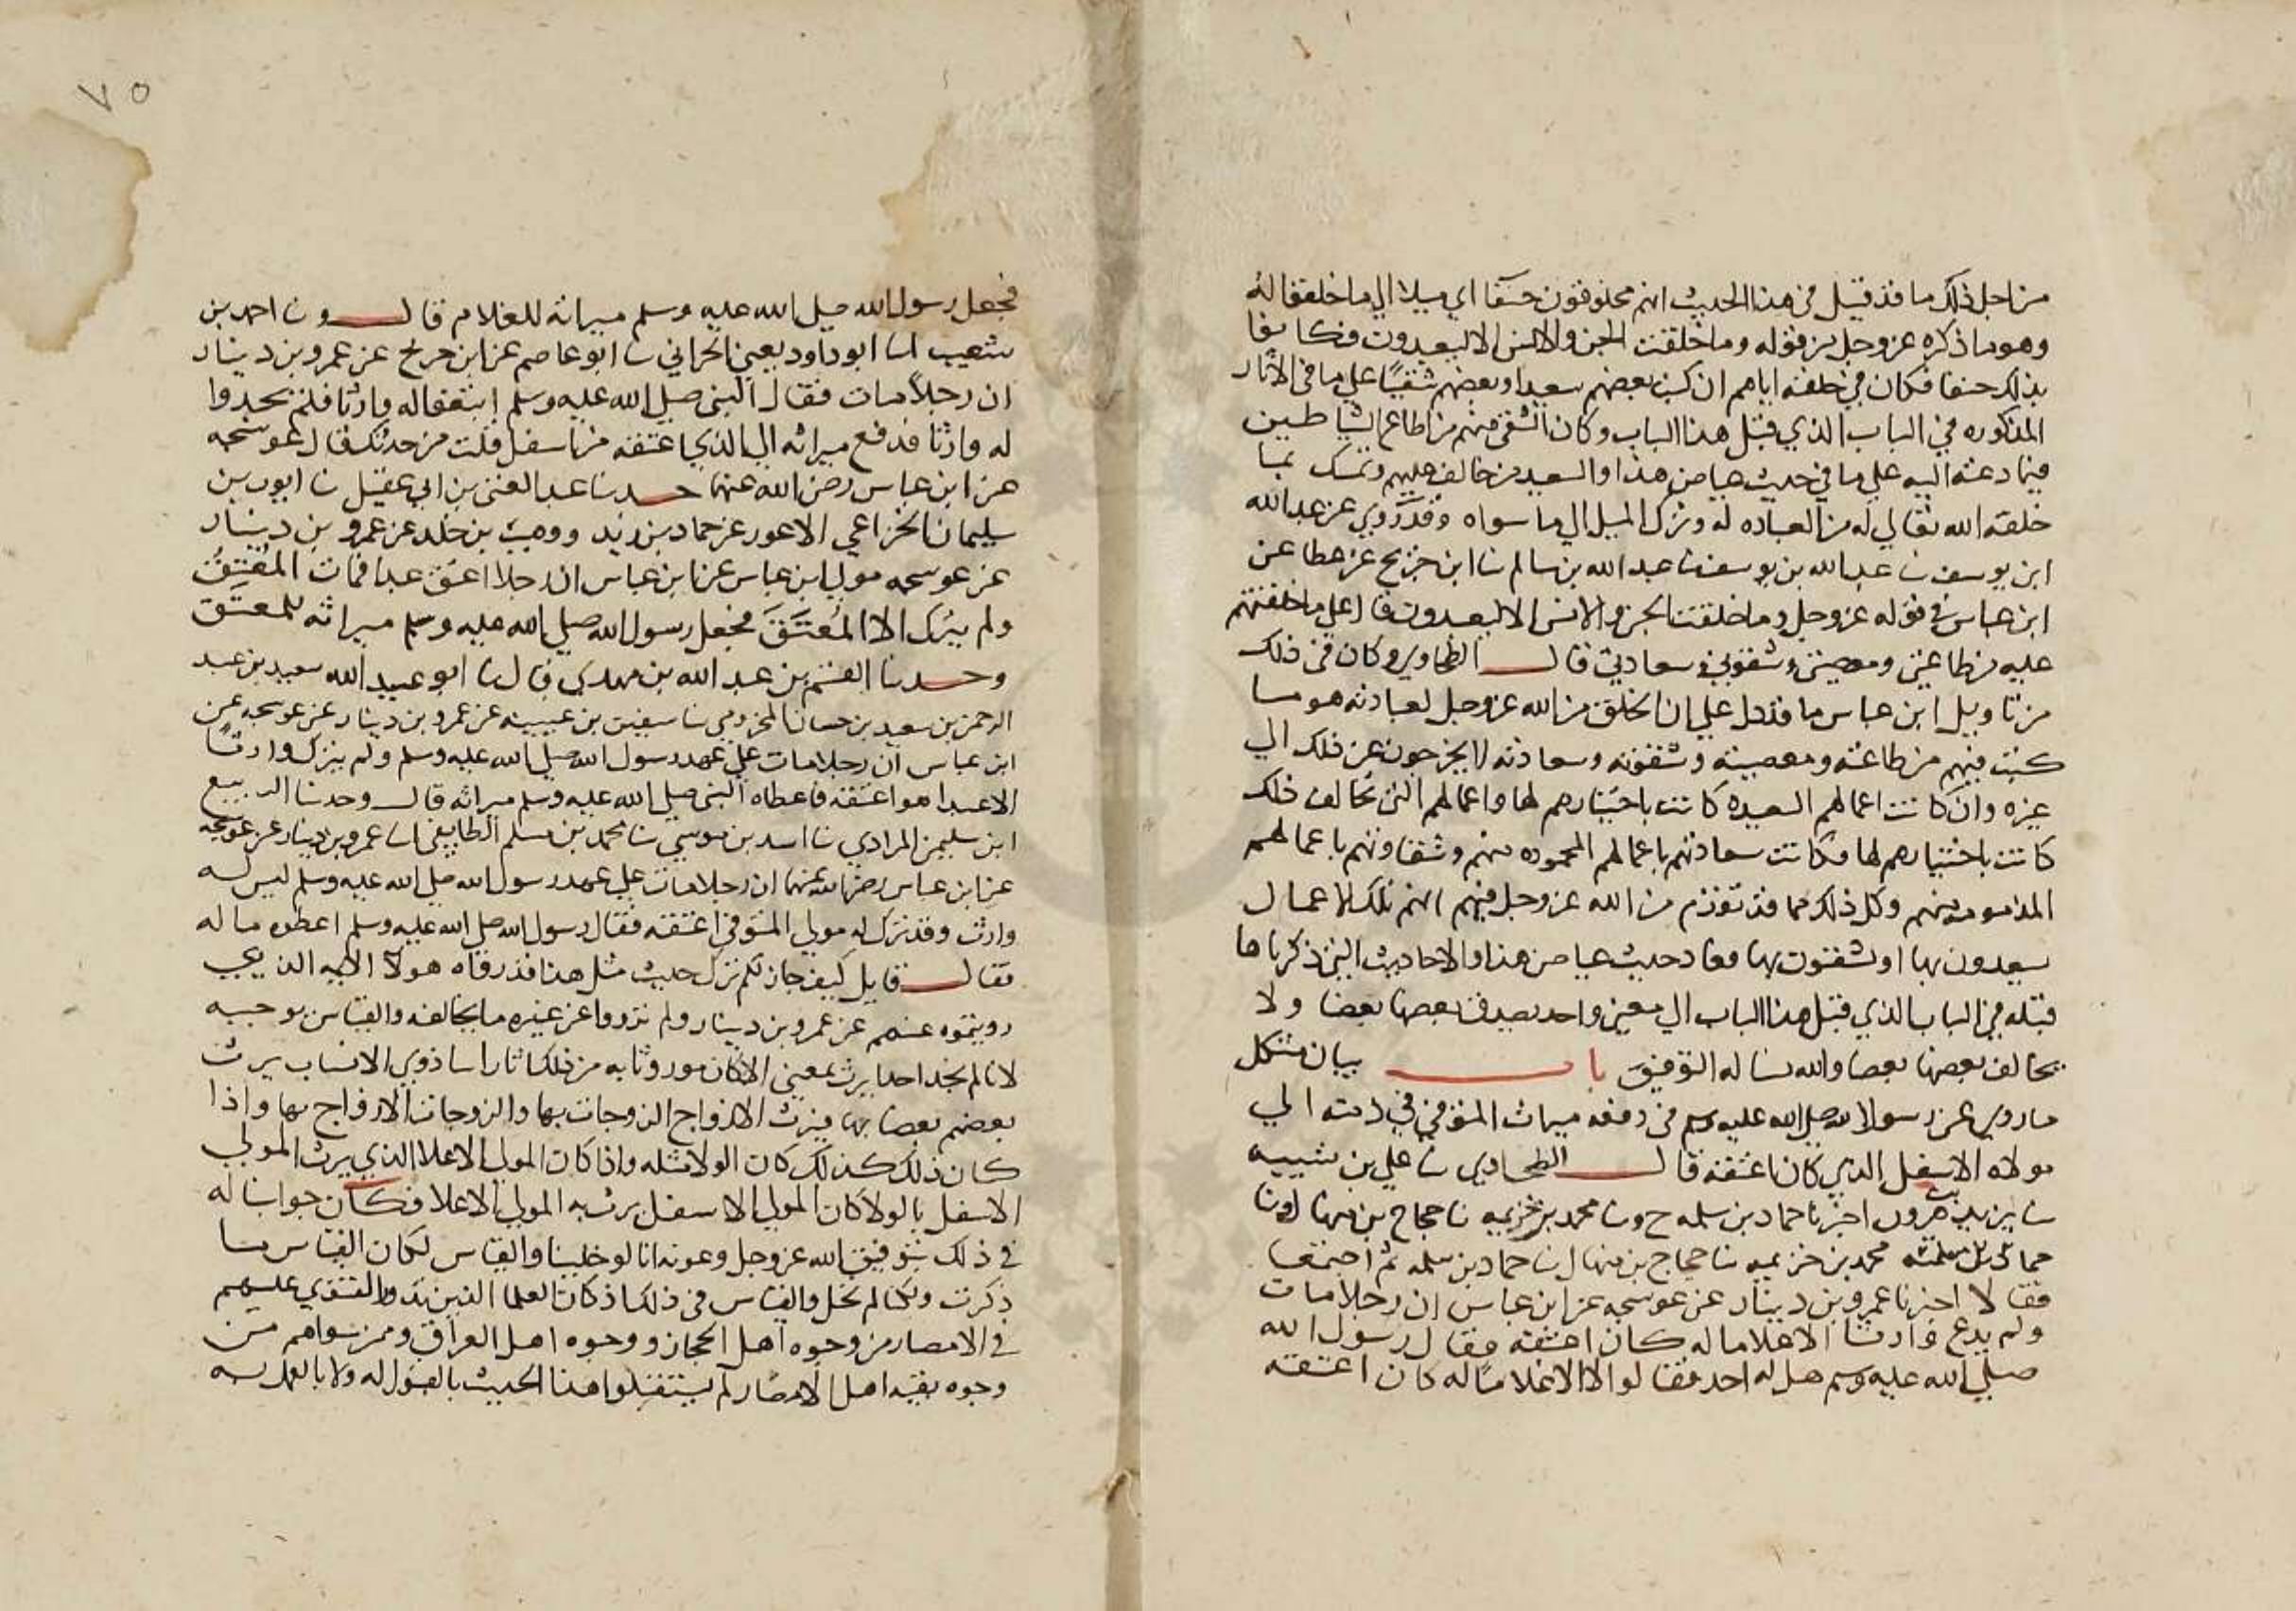 من اجل ذلك ما قد قيل في هذا الحديث انهم مخلوقون حنفا اي ميلا الي ما خلقوا له
وهو ما ذكره عز وجل من قوله وما خلقت الجن والانس الا ليعبدون فكانوا
بذلك حنفا فكان في خلقه اياهم ان كتب بعضهم سعيدا وبعضهم شقيا علي ما في الاثار
المذكوره في الباب الذي قبل هذا الباب وكان الشقي منهم من اطاع الشياطين
فيما دعته اليه علي ما في حديث عياض هذا والسعيد من خالف عليهم وتمسك بما
خلقه الله تعالي له من العباده له وترك الميل الي ما سواه وقد روي عن عبد الله
ابن يوسف نا عبد الله بن يوسف نا عبد الله بن سالم نا ابن جريج عن عطا عن
ابن عباس في قوله عز وجل وما خلقت الجن والانس الا ليعبدون قال علي ما خلقتهم
عليه من طاعتي ومعصيتي وشقوتي وسعادتي قال الطحاوي وكان في ذلك
من تاويل ابن عباس ما قد دل علي ان الخلق من الله عز وجل لعبادته هو مما
كتب فيهم من طاعته ومعصيته وشقوته وسعادته لا يخرجون عن ذلك الي
غيره وان كانت اعمالهم السعيده كانت باختيارهم لها واعمالهم التي تخالف ذلك
كانت باختيارهم لها فكانت سعادتهم باعمالهم المحموده منهم وشقاوتهم باعمالهم
المذمومه منهم وكل ذلك مما قد تقدم من الله عز وجل فيهم انهم تلك الاعمال
يسعدون بها او يشقون بها فعاد حديث عياض هذا والاحاديث التي ذكرناها
قبله في الباب الذي قبل هذا الباب الي معني واحد يصدق بعضها بعضا ولا
يخالف بعضها بعضا والله نساله التوفيق باب بيان مشكل
ما روي عن رسول الله صلي الله عليه وسلم في دفعه ميراث المتوفي في زمنه الي
مولاه الاسفل الذي كان اعتقه قال الطحاوي نا علي بن شيبه
نا يزيد بن هرون اخبرنا حماد بن سلمه ح ونا محمد بن خزيمه نا حجاج بن منهال ونا
حماد بن سلمه محمد بن خزيمه نا حجاج بن منهال نا حماد بن سلمه ثم اجتمعا
فقالا اخبرنا عمرو بن دينار عن عوسجه عن ابن عباس ان رجلا مات
ولم يدع وارثا الا غلاما له كان اعتقه فقال رسول الله
صلي الله عليه وسلم هل له احد فقالوا لا الا غلاما له كان اعتقه
٧٥
فجعل رسول الله صلي الله عليه وسلم ميراثه للغلام قال ونا احمد بن
شعيب انا ابو داود يعني الحراني نا ابو عاصم عن ابن جريج عن عمرو بن دينار
ان رجلا مات فقال النبي صلي الله عليه وسلم ابتغوا له وارثا فلم يجدوا
له وارثا فدفع ميراثه الي الذي اعتقه من اسفل قلت من حدثك قال عوسجه
عن ابن عباس رضي الله عنهما حدثنا عبد الغني بن ابي عقيل نا ايوب بن
سليمان الخزاعي الاعور عن حماد بن زيد ووهيب بن خلد عن عمرو بن دينار
عن عوسجه مولي ابن عباس عن ابن عباس ان رجلا اعتق عبدا فمات المعتق
ولم يترك الا المعتق فجعل رسول الله صلي الله عليه وسلم ميراثه للمعتق
وحدثنا القسم بن عبد الله بن مهدي قال نا ابو عبيد الله سعيد بن عبد
الرحمن بن سعيد بن حسان المخزومي نا سفين بن عيينه عن عمرو بن دينار عن عوسجه عن
ابن عباس ان رجلا مات علي عهد رسول الله صلي الله عليه وسلم ولم يترك وارثا
الا عبدا هو اعتقه فاعطاه النبي صلي الله عليه وسلم ميراثه قال وحدثنا الربيع
ابن سليمن المرادي نا اسد بن موسي نا محمد بن مسلم الطايفي نا عمرو بن دينار عن عوسجه
عن ابن عباس رضي الله عنهما ان رجلا مات علي عهد رسول الله صلي الله عليه وسلم ليس له
وارث وقد ترك له مولي المتوفي اعتقه فقال رسول الله صلي الله عليه وسلم اعطوه ماله
فقال قايل كيف جاز لكم ترك حديث مثل هذا قد رواه هولا الايمه الذي
رويتموه عنهم عن عمرو بن دينار ولم ترووا عن غيره ما يخالفه والقياس يوجبه
لانا لم نجد احدا يرث بمعني الا كان موروثا به من ذلك انا راينا ذوي الانساب يرث
بعضهم بعضا بها ويرث الازواج الزوجات بها والزوجات الازواج بها واذا
كان ذلك كذلك كان الولا مثله واذا كان المولي الاعلا الذي يرث المولي
الاسفل بالولا كان المولي الاسفل يرث به المولي الاعلا فكان جوابنا له
في ذلك بتوفيق الله عز وجل وعونه انا لو خلينا والقياس لكان القياس ما
ذكرت ولكنا لم نخل والقياس في ذلك اذ كان العلما الذين تدور الفتوي عليهم
في الامصار من وجوه اهل الحجاز ووجوه اهل العراق ومن سواهم من
وجوه بقيه اهل الامصار لم يستقبلوا هذا الحديث بالقبول له ولا بالعمل به